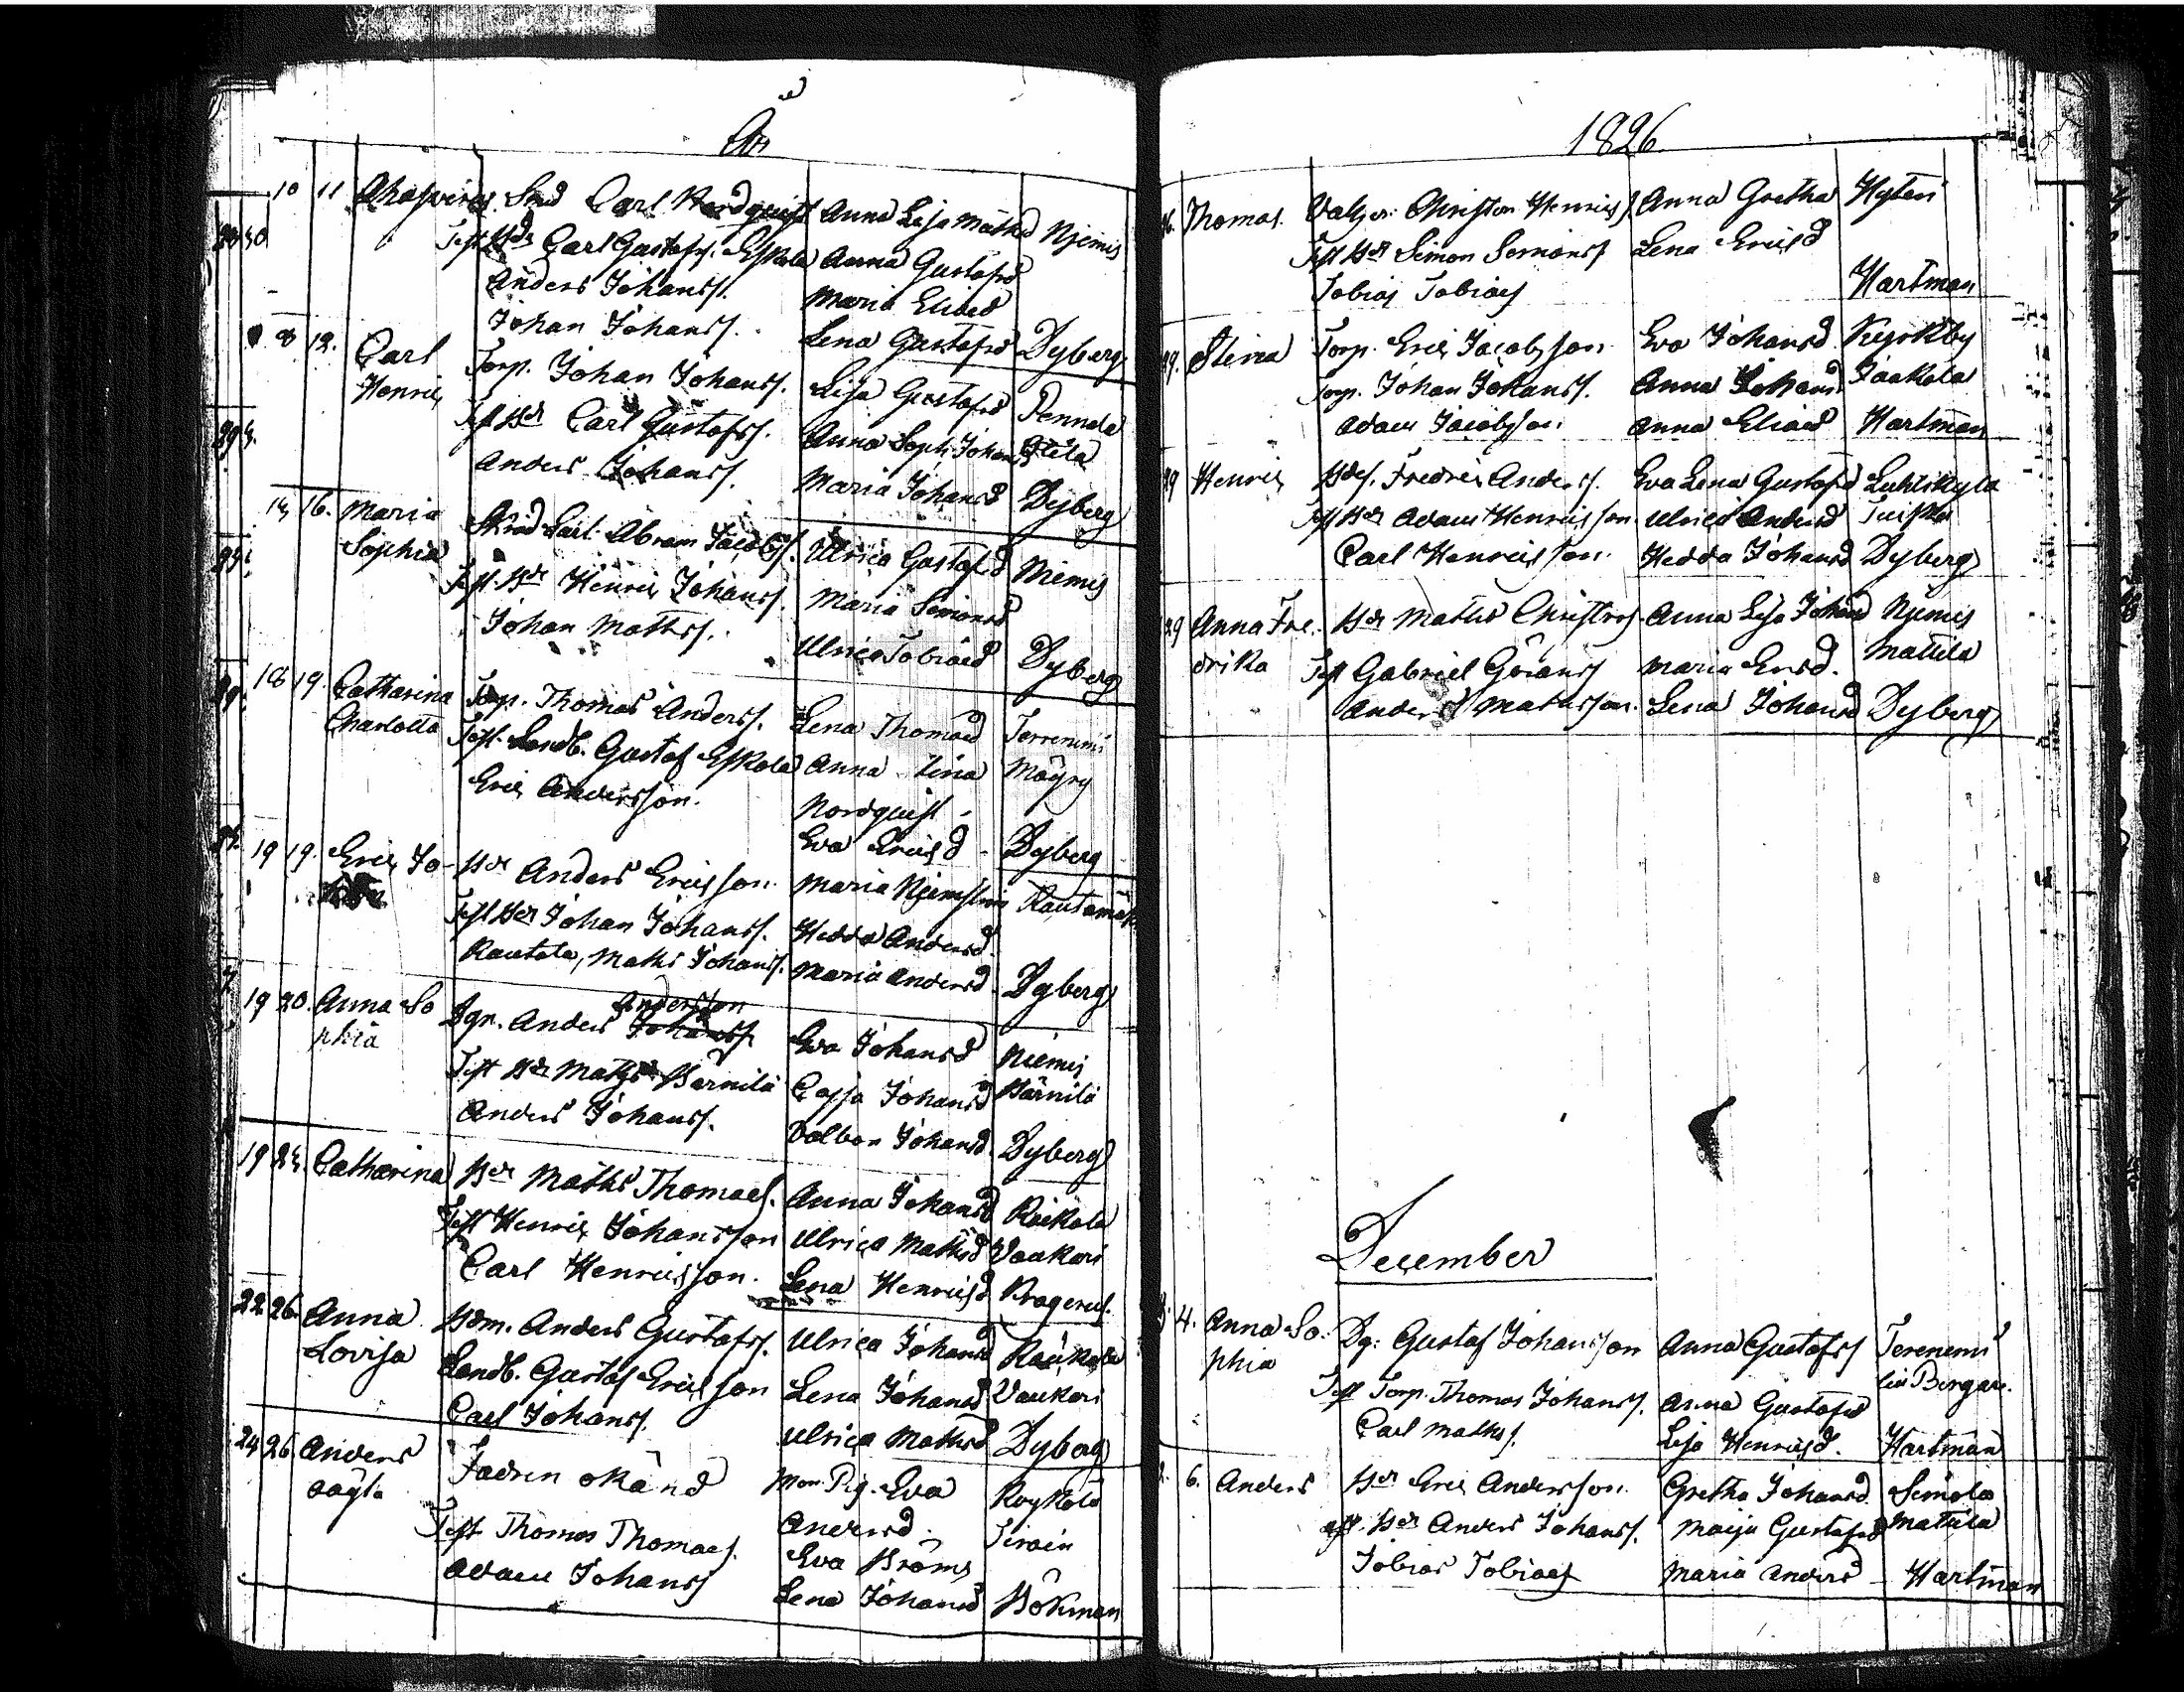 År
10 11 Ahasverus Sold Carl Nordquist Anna Lisa Mathsd Njemis
Test Bdr Carl Gustafss. Eskola Anna Gustafsd
Anders Johanss. Maria Eliaed
Johan Johanss. Lena Gustafsd Dyberg
8 12. Carl Torp. Johan Johanss. Lisa Gustafsd Pennala
Henric Test Bdr Carl Gustafss. Anna Soph. Johansd
Anders Johanss. Maria Johansd Dyberg
14 16. Maria Abram Jacobss. Ulrica Gustafsd Niemis
Sophia Test. Bdr Henric Johanss. Maria Simonsd
Johan Mathss. Ulrica Tobiaed Dyberg
18 19. Catharina Torp. Thomas Anderss. Lena Thomaed Terreniemi
Charlotta Test. Landb. Gustaf Eskola Anna Lena Mäyry
Eric Andersson. Nordquist
Eva Ericsd Dyberg
19 19. Eric Jo- Bdr Anders Ericsson. Maria Rautamäki
Test Bdr Johan Johanss. Hedda Andersd
Rautala, Maths Johanss. Maria Andersd Dyberg
Andersson
19 20. Anna So Dgr. Anders Johanss. Eva Johansd Niemis
phia Test Bdr Maths Bärnilä Cajsa Johansd Bärnilä
Anders Johanss. Valbor Johansd Dyberg
19 24. Catharina Bdr Maths Thomaes. Anna Johansd Raikola
Test Henric Johansson Ulrica Mathsd Vaakari
Carl Henricsson. Lena Henricsd Krogerus.
22 26. Anna Bdm. Anders Gustafss. Ulrica Johansd
Lovisa Landb. Gustaf Ericsson Lena Johansd Vaakari
Carl Johanss. Ulrica Mathsd Dyberg
24 26. Anders Fadren okänd Mor Pig. Eva
oägta Andersd.
Test Thomas Thomaes. Eva Bröms
Adam Johanss Lena Johansd Bökman
1826
Thomas. Christer Henricss. Anna Gretha Hyteri
Test Bdr Simon Simonss Lena Ericsd
Tobias Tobiaes Hartman
Stina Torp. Eric Jacobsson. Eva Johansd.
Torp. Johan Johanss. Anna Johansd Jaakola
Adam Jacobsson Anna Eliaed Hartman
29 Henric Bdes. Fredric Anderss. Eva Lena Gustafsd Luhtikylä
Test Bdr Adam Henricsson. Ulrica Andersd
Carl Henricsson. Hedda Johansd Dyberg
29 Anna Fre- Bdr Maths Christerss. Anna Lisa Johansd Njemis
drika Test Gabriel Görans Maria Ersd. Mattila
Anders Mathsson. Lena Johansd Dyberg
December
4. Anna So. Dg: Gustaf Johansson Anna Gustafss Tereniemi
phia Test Torp. Thomas Johanss. Anna Gustafsd
Carl Mathss. Lisa Henricsd. Hartman
6. Anders Bdr Eric Andersson. Gretha Johansd. Simola
Bdr Anders Johanss. Maija Gustafsd Matula
Tobias Tobiaes Maria Andersd Hartman